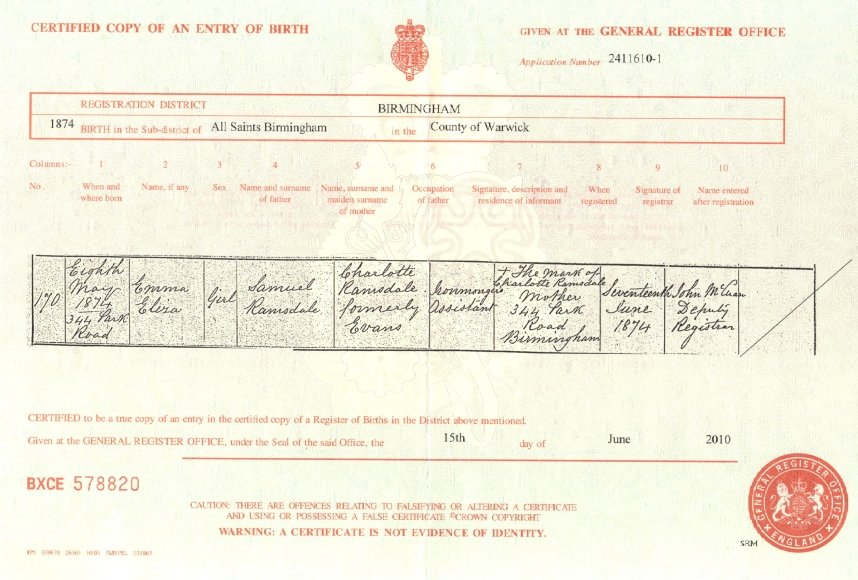 CERTIFIED COPY OF AN ENTRY OF BIRTH
GIVEN AT THE GENERAL REGISTER OFFICE
Application Number 2411610-1
REGISTRATION DISTRICT BIRMINGHAM
1874 BIRTH in the Sub-district of All Saints Birmingham in the County of Warwick
Columns:- 1 2 3 4 5 6 7 8 9 10
No. When and Name, if any Sex Name and surname Name, surname and Occupation Signature, description and When Signature of Name entered
where born of father maiden surname of father residence of informant registered registrar after registration
of mother
170
Eighth
May
1874
344 Park
Road
Emma
Eliza
Girl
Samuel
Ramsdale
Charlotte
Ramsdale
formerly
Evans
Ironmongers
Assistant
+ The mark of
Charlotte Ramsdale
Mother
344 Park
Road
Birmingham
Seventeenth
June
1874
John
Deputy
Registrar
CERTIFIED to be a true copy of an entry in the certified copy of a Register of Births in the District above mentioned.
Given at the GENERAL REGISTER OFFICE, under the Seal of the said Office, the 15th day of June 2010
BXCE 578820
CAUTION: THERE ARE OFFENCES RELATING TO FALSIFYING OR ALTERING A CERTIFICATE
AND USING OR POSSESSING A FALSE CERTIFICATE ©CROWN COPYRIGHT
WARNING: A CERTIFICATE IS NOT EVIDENCE OF IDENTITY.
GENERAL REGISTER OFFICE
ENGLAND
SRM